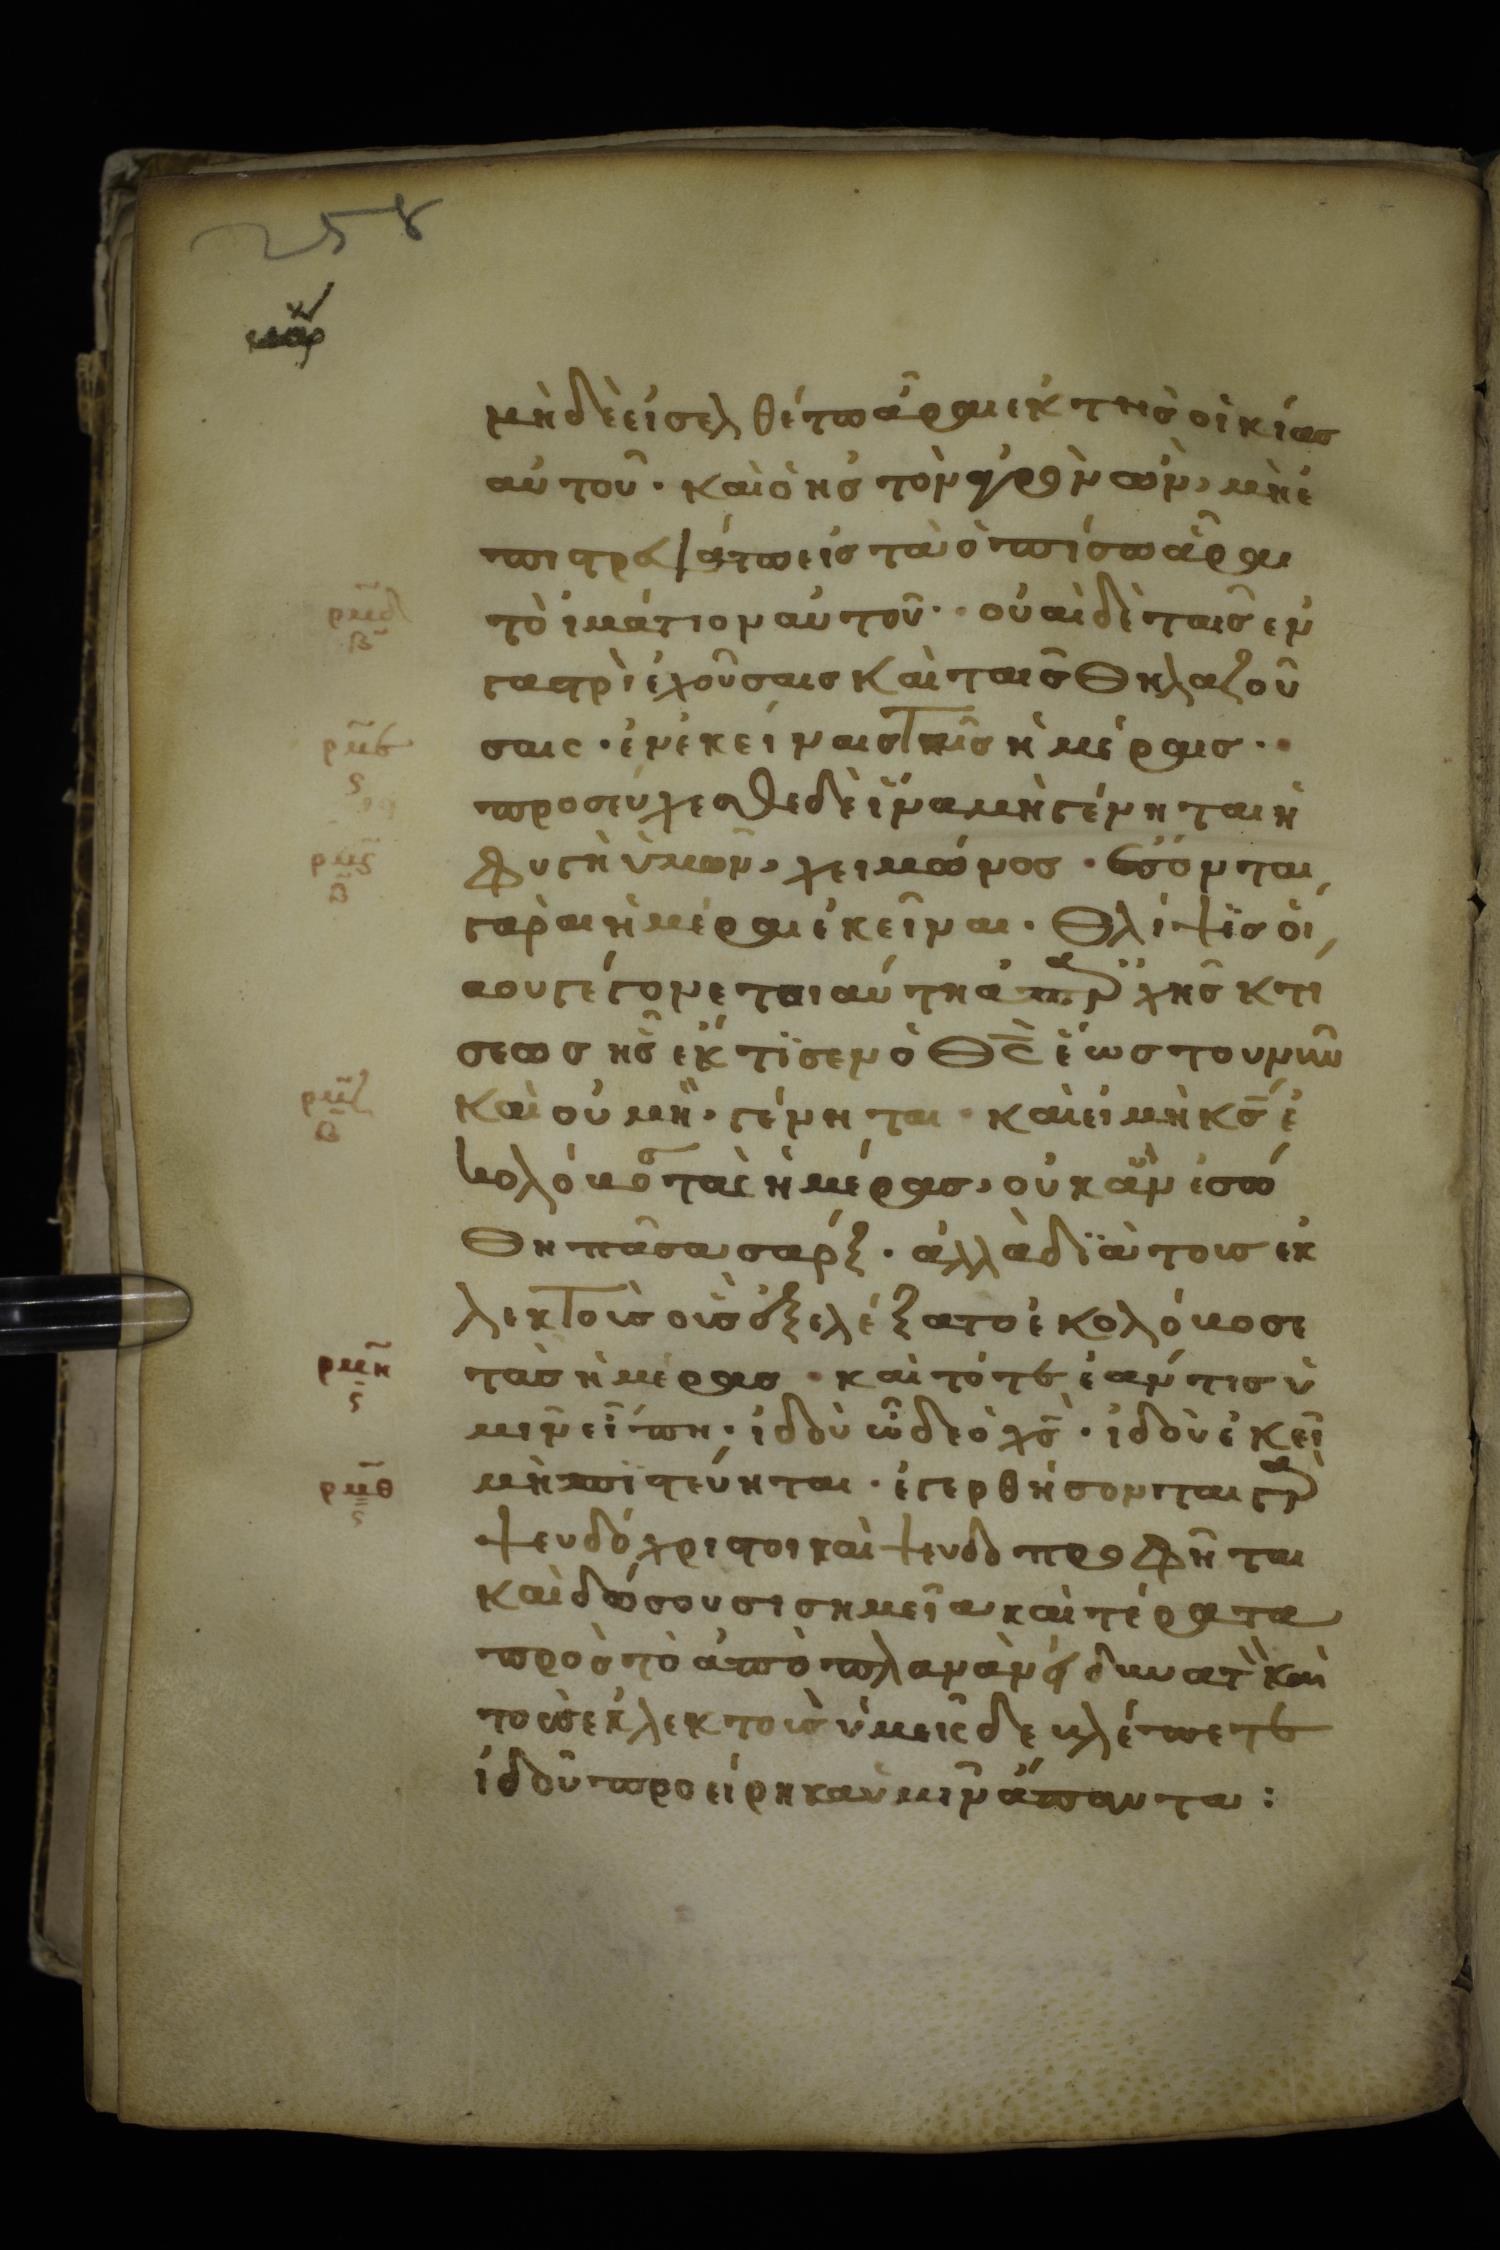 258
μὴ δὲ εἰσελθέτω ἆραι ἐκ τῆς οἰκίας
αὐτοῦ· καὶ ὁ εἰς τὸν ἀγρὸν ὢν, μὴ ἐ
πιστρεψάτω εἰς τὰ ὀπίσω ἆραι
τὸ ἱμάτιον αὐτοῦ·· οὐαὶ δὲ ταῖς ἐν
ρμδ
β
γαστρὶ ἐχούσαις καὶ ταῖς θηλαζού
σαις· ἐν ἐκείναις ταῖς ἡμέραις··
ρμε
ς
προσεύχεσθε δὲ ἵνα μὴ γένηται ἡ
φυγὴ ὑμῶν, χειμῶνος· ἔσονται
ρμς
β
γὰρ αἱ ἡμέραι ἐκεῖναι· θλίψις οἵ
α οὐ γέγονε τοιαύτη ἀπ' ἀρχῆς κτί
σεως ἧς ἔκτϊσεν ὁ θς ἕως τοῦ νῦν
καὶ οὐ μὴ· γένηται· καὶ εἰ μὴ κς ἐ
ρμζ
β
κολόβωσε τὰς ἡμέρας, οὐκ ἂν ἐσώ
θη πᾶσα σάρξ· ἀλλὰ δϊὰ τοὺς ἐκ
λεκτοὺς οὓς ἐξελέξατο ἐκολόβωσε
τὰς ἡμέρας· καὶ τότε ἐάν τις ὑ
ρμη
ς
μῖν εἴπη· ἰδοὺ ὧδε ὁ χς· ἰδοὺ ἐκεῖ
μὴ πϊστεύηται· ἐγερθήσονται γὰρ
ρμθ
ς
ψευδόχριστοι καὶ ψευδοπροφῆται
καὶ δώσουσι σημεῖα καὶ τέρατα
πρὸς τὸ ἀποπλανᾶν εἰ δυνατὸν καὶ
τοὺς ἐκλεκτοὺς ὑμεῖς δὲ βλέπετε
ἰδοῦ προείρηκα ὑμῖν ἅπαντα: